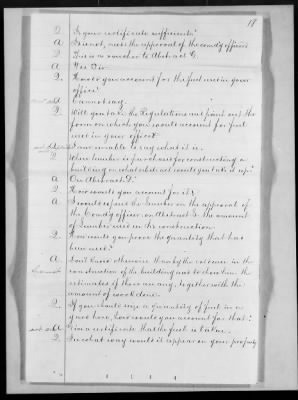 18
Q. Is your certificate sufficient?
A. It is not, needs the approval of the comd'g officer.
Q. This is a voucher to Abstract C.
A. Yes Sir.
Q. How do you account for the fuel used in your
office?
A. I cannot say.
Q. Will you take the Regulations and point out the
form on which you would account for fuel
used in your office?
A. I am unable to say what it is.
Q. When lumber is purchased for constructing a
building on what abstract would you take it up?
A. On Abstract D.
Q. How would you account for it?
A. I would expend the lumber on the approval of
the Comd'g officer, on Abstract L the amount
of lumber used in the construction.
Q. How would you prove the quantity that has
been used?
A. I don't know otherwise than by the
construction of the building and to show them the
estimates if there are any, together with the
amount of work done.
Q. If you would issue a quantity of fuel to a
how would you account for that?
A. Give a certificate that the fuel is
Q. In what way would it appear on your property